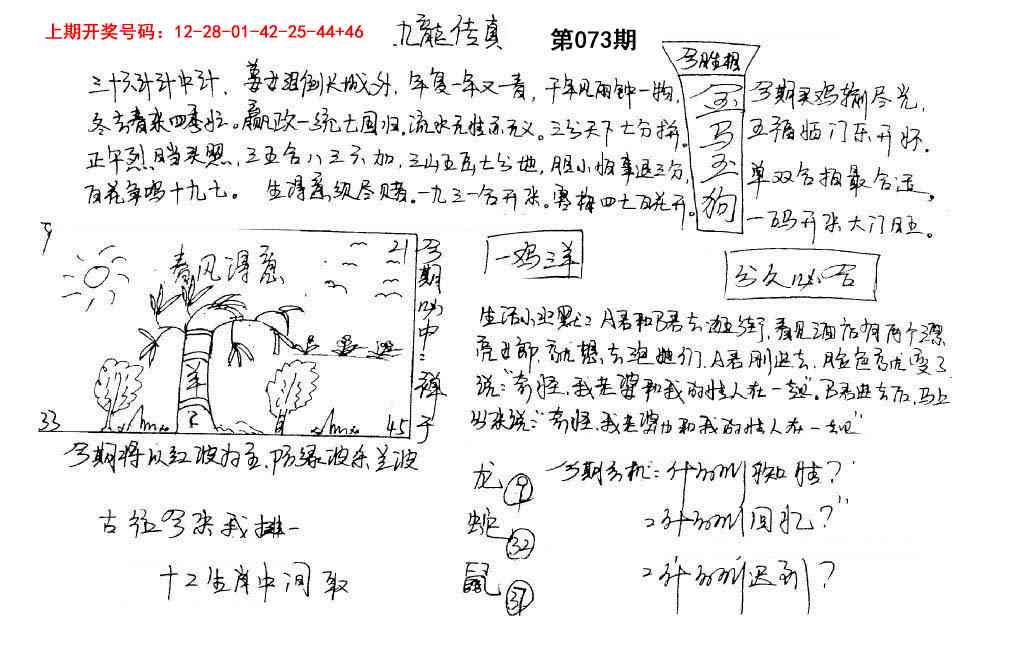 上期开奖号码：12-28-01-42-25-44+46
九龍传真
第073期
今期胜相
三十六计计中计，姜女泪倒长城外，年复一年又一春，千年见两钟一物，
冬去春来四季忙。嬴政一统亡国归，流水无情亦无义。三分天下七分拚，
正午烈日当头照，三五合八三不加，三山五岳七分地，胆小怕事退三分，
百花争鸣十九七。生得意须尽赌。一九三一合开来。寒梅四七百花开。
金
马
玉
狗
今期买鸡输尽光，
五福临门乐开怀。
单双合拍最合适，
一码开来大门旺。
9
21
春风得意
羊
33
45
今期必中：禅子
今期将以红波为主，防绿波杀兰波
古往今来我排一
十二生肖中间取
一鸡三羊
分久必合
生活小幽默：A君和B君去逛街，看见酒店有两个漂
亮女郎，就想去泡她们，A君刚进去，脸色就变了
说："奇怪，我老婆和我的情人在一起"。B君进去后，马上
出来说："奇怪，我老婆也和我的情人在一起"
龙 9
蛇 32
鼠 37
今期玄机：什么叫知情？
：什么叫回忆？"
：什么叫迟到？